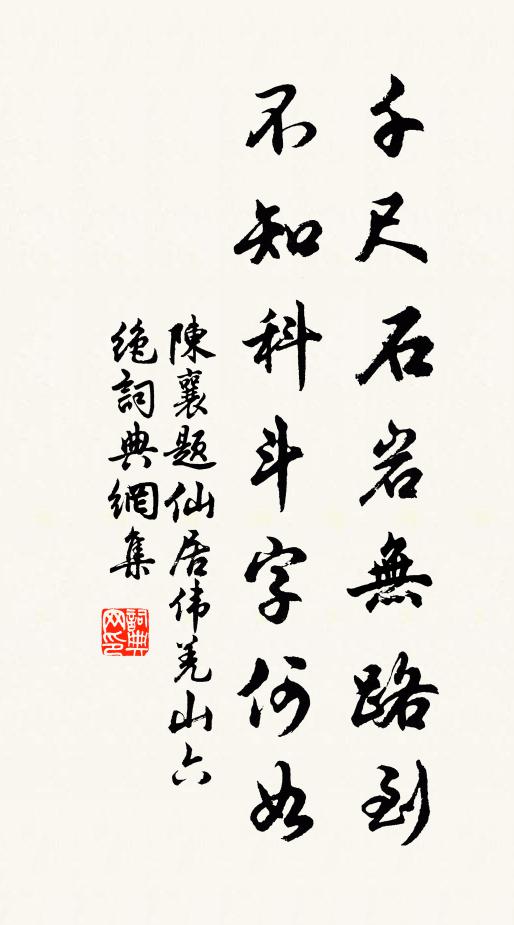 千尺石岩無路到
不知科斗字何如
陳襄題仙居伟羌山六
绝詞典網集
詞典網印